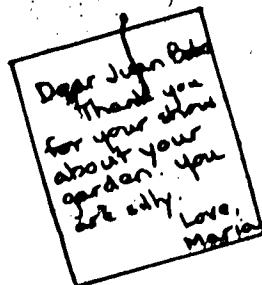 Dear Juan Bobo
Thank you
for your show
about your
garden. you
are silly.
Love,
Maria